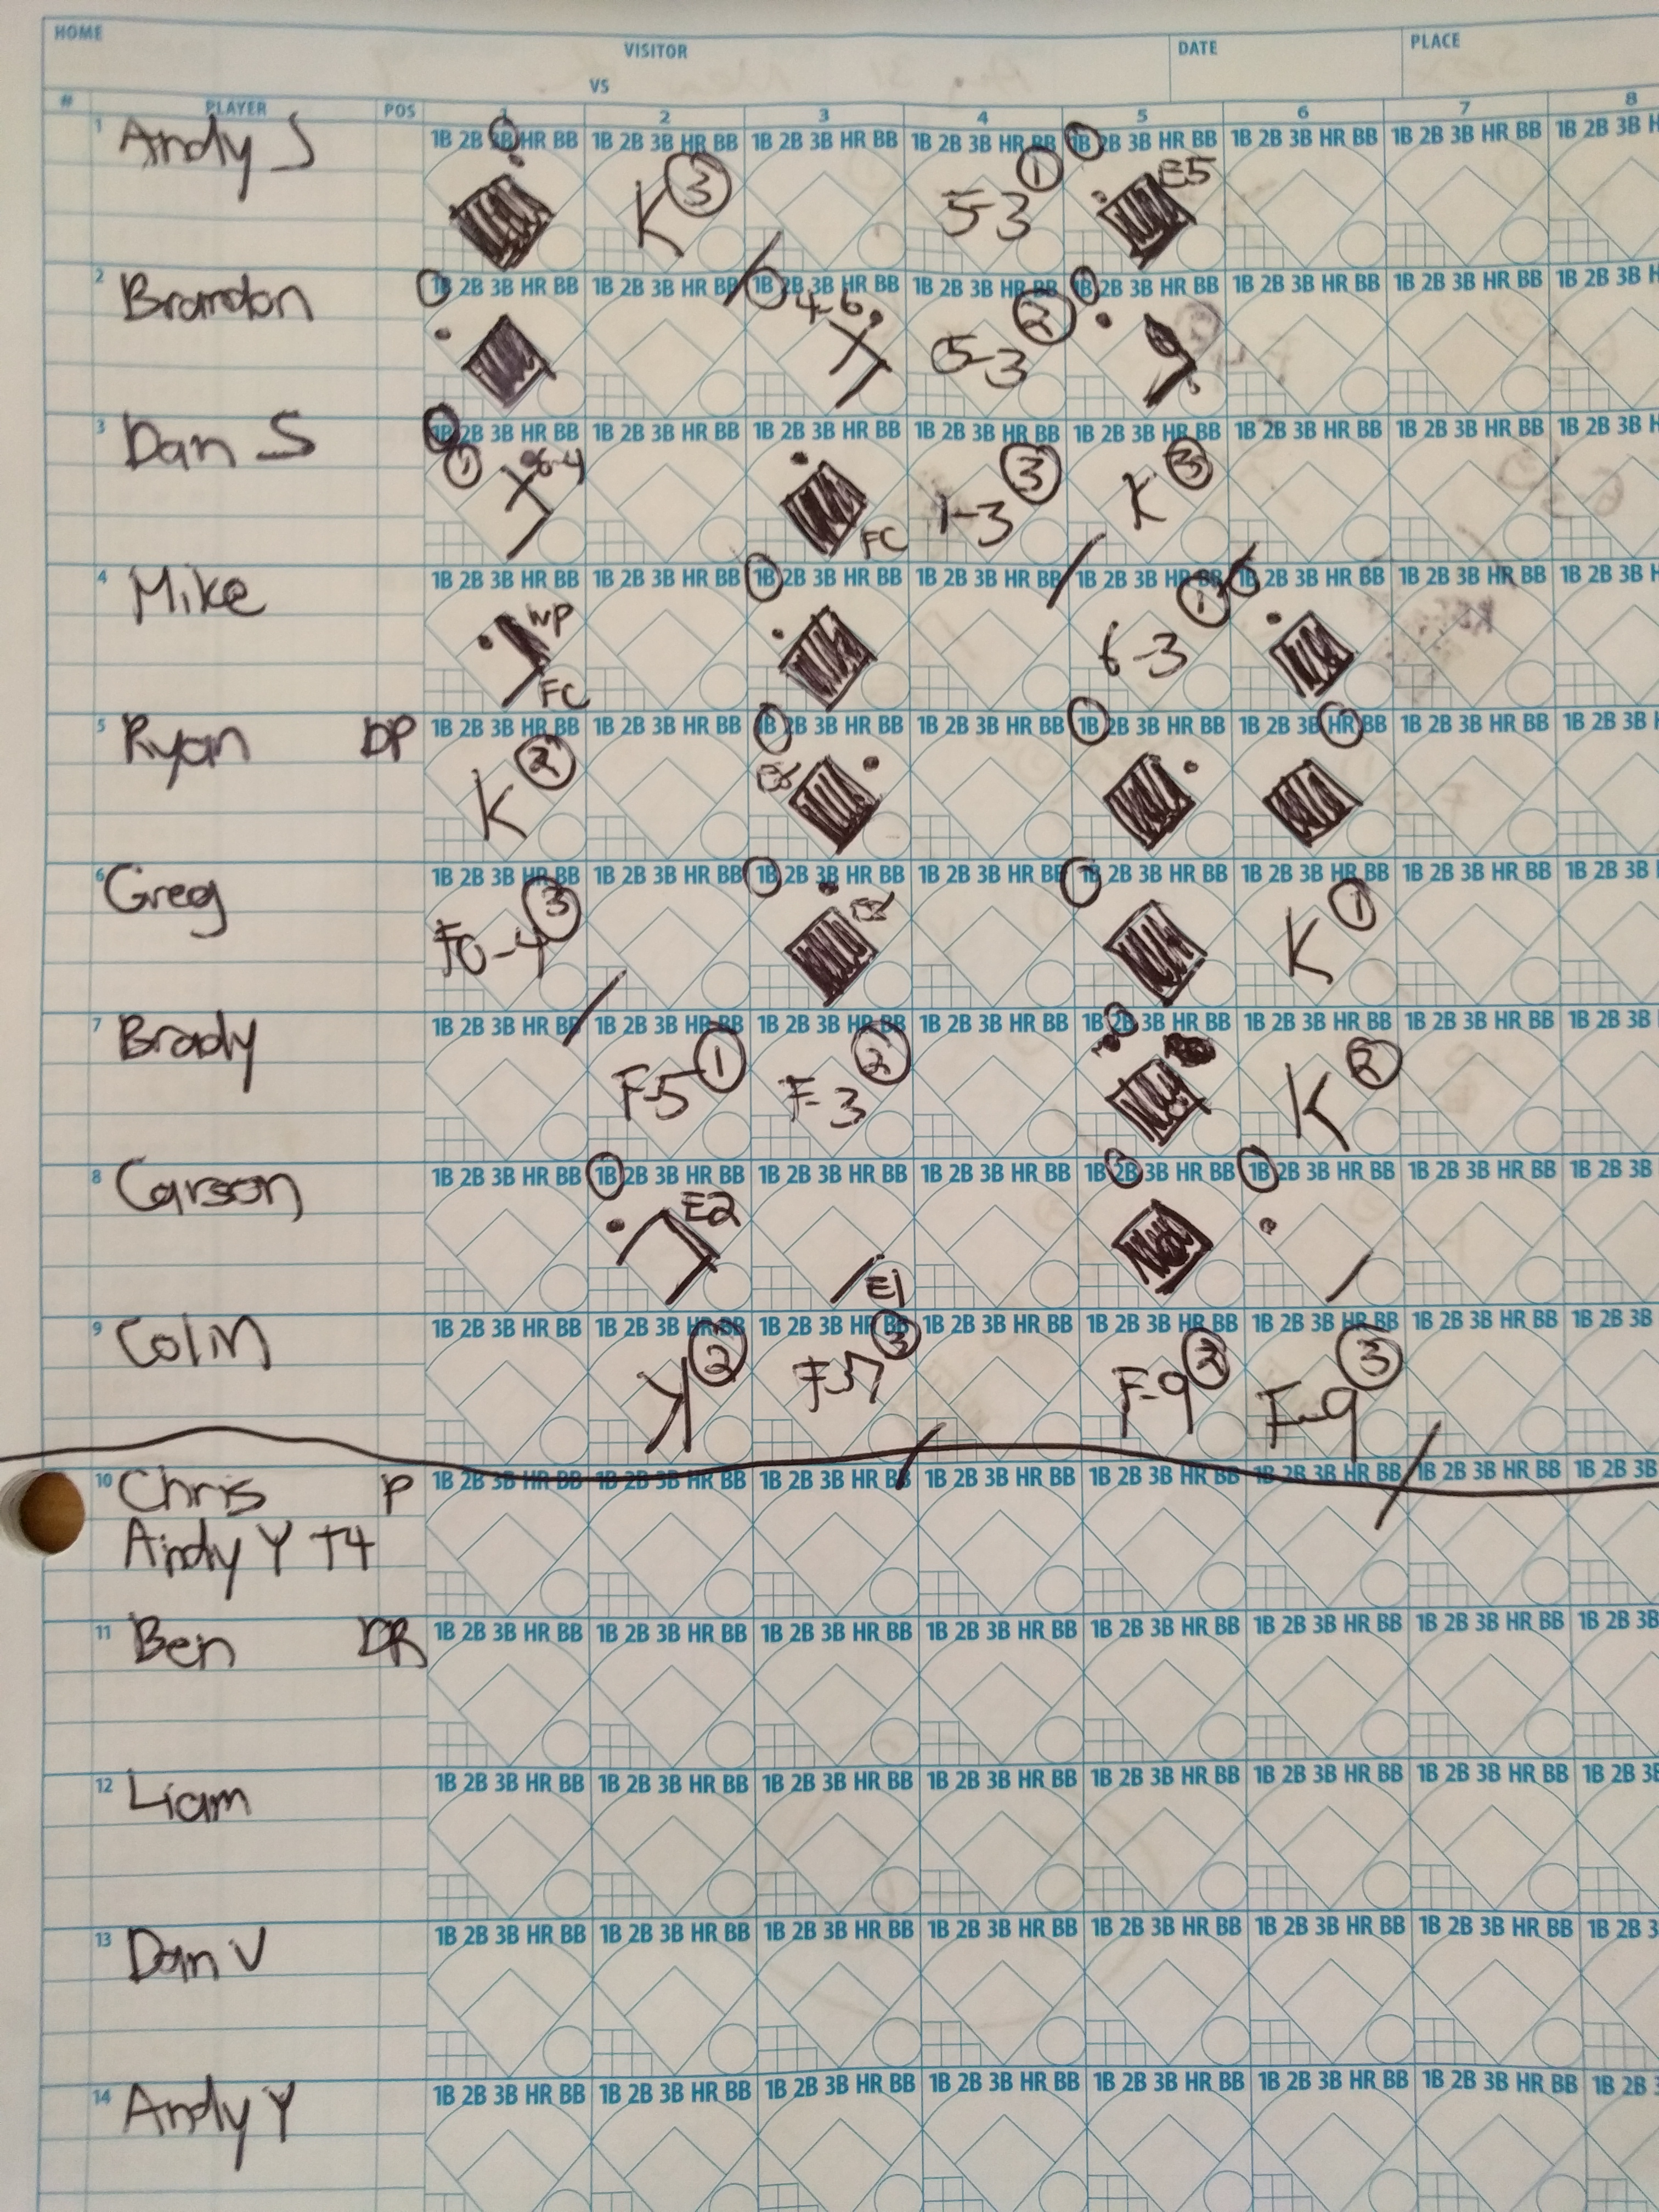 HOME VISITOR VS DATE PLACE
# PLAYER POS 1 2 3 4 5 6 7 8
1 Andy S 1B 2B 3B HR BB 1B 2B 3B HR BB 1B 2B 3B HR BB 1B 2B 3B HR BB 1B 2B 3B HR BB 1B 2B 3B HR BB 1B 2B 3B HR BB 1B 2B 3B H
K 3 5-3 1 E5
2 Brandon 1B 2B 3B HR BB 1B 2B 3B HR BB 1B 2B 3B HR BB 1B 2B 3B HR BB 1B 2B 3B HR BB 1B 2B 3B HR BB 1B 2B 3B HR BB 1B 2B 3B H
4-6 5-3 2
3 Dan S 1B 2B 3B HR BB 1B 2B 3B HR BB 1B 2B 3B HR BB 1B 2B 3B HR BB 1B 2B 3B HR BB 1B 2B 3B HR BB 1B 2B 3B HR BB 1B 2B 3B H
1 6-4 FC 1-3 3 K 3
4 Mike 1B 2B 3B HR BB 1B 2B 3B HR BB 1B 2B 3B HR BB 1B 2B 3B HR BB 1B 2B 3B HR BB 1B 2B 3B HR BB 1B 2B 3B HR BB 1B 2B 3B H
WP FC 6-3 1
5 Ryan DP 1B 2B 3B HR BB 1B 2B 3B HR BB 1B 2B 3B HR BB 1B 2B 3B HR BB 1B 2B 3B HR BB 1B 2B 3B HR BB 1B 2B 3B HR BB 1B 2B 3B H
K 2
6 Greg 1B 2B 3B HR BB 1B 2B 3B HR BB 1B 2B 3B HR BB 1B 2B 3B HR BB 1B 2B 3B HR BB 1B 2B 3B HR BB 1B 2B 3B HR BB 1B 2B 3B
FO-4 3 K 1
7 Brady 1B 2B 3B HR BB 1B 2B 3B HR BB 1B 2B 3B HR BB 1B 2B 3B HR BB 1B 2B 3B HR BB 1B 2B 3B HR BB 1B 2B 3B HR BB 1B 2B 3B
F-5 1 F-3 2 K 2
8 Carson 1B 2B 3B HR BB 1B 2B 3B HR BB 1B 2B 3B HR BB 1B 2B 3B HR BB 1B 2B 3B HR BB 1B 2B 3B HR BB 1B 2B 3B HR BB 1B 2B 3B
E2 E1
9 Colin 1B 2B 3B HR BB 1B 2B 3B HR BB 1B 2B 3B HR BB 1B 2B 3B HR BB 1B 2B 3B HR BB 1B 2B 3B HR BB 1B 2B 3B HR BB 1B 2B 3B
K 2 F-7 3 F-9 2 F-9 3
10 Chris P 1B 2B 3B HR BB 1B 2B 3B HR BB 1B 2B 3B HR BB 1B 2B 3B HR BB 1B 2B 3B HR BB 1B 2B 3B HR BB 1B 2B 3B HR BB 1B 2B 3B
Andy Y T4
11 Ben DR 1B 2B 3B HR BB 1B 2B 3B HR BB 1B 2B 3B HR BB 1B 2B 3B HR BB 1B 2B 3B HR BB 1B 2B 3B HR BB 1B 2B 3B HR BB 1B 2B 3B
12 Liam 1B 2B 3B HR BB 1B 2B 3B HR BB 1B 2B 3B HR BB 1B 2B 3B HR BB 1B 2B 3B HR BB 1B 2B 3B HR BB 1B 2B 3B HR BB 1B 2B 3B
13 Dan V 1B 2B 3B HR BB 1B 2B 3B HR BB 1B 2B 3B HR BB 1B 2B 3B HR BB 1B 2B 3B HR BB 1B 2B 3B HR BB 1B 2B 3B HR BB 1B 2B 3
14 Andy Y 1B 2B 3B HR BB 1B 2B 3B HR BB 1B 2B 3B HR BB 1B 2B 3B HR BB 1B 2B 3B HR BB 1B 2B 3B HR BB 1B 2B 3B HR BB 1B 2B